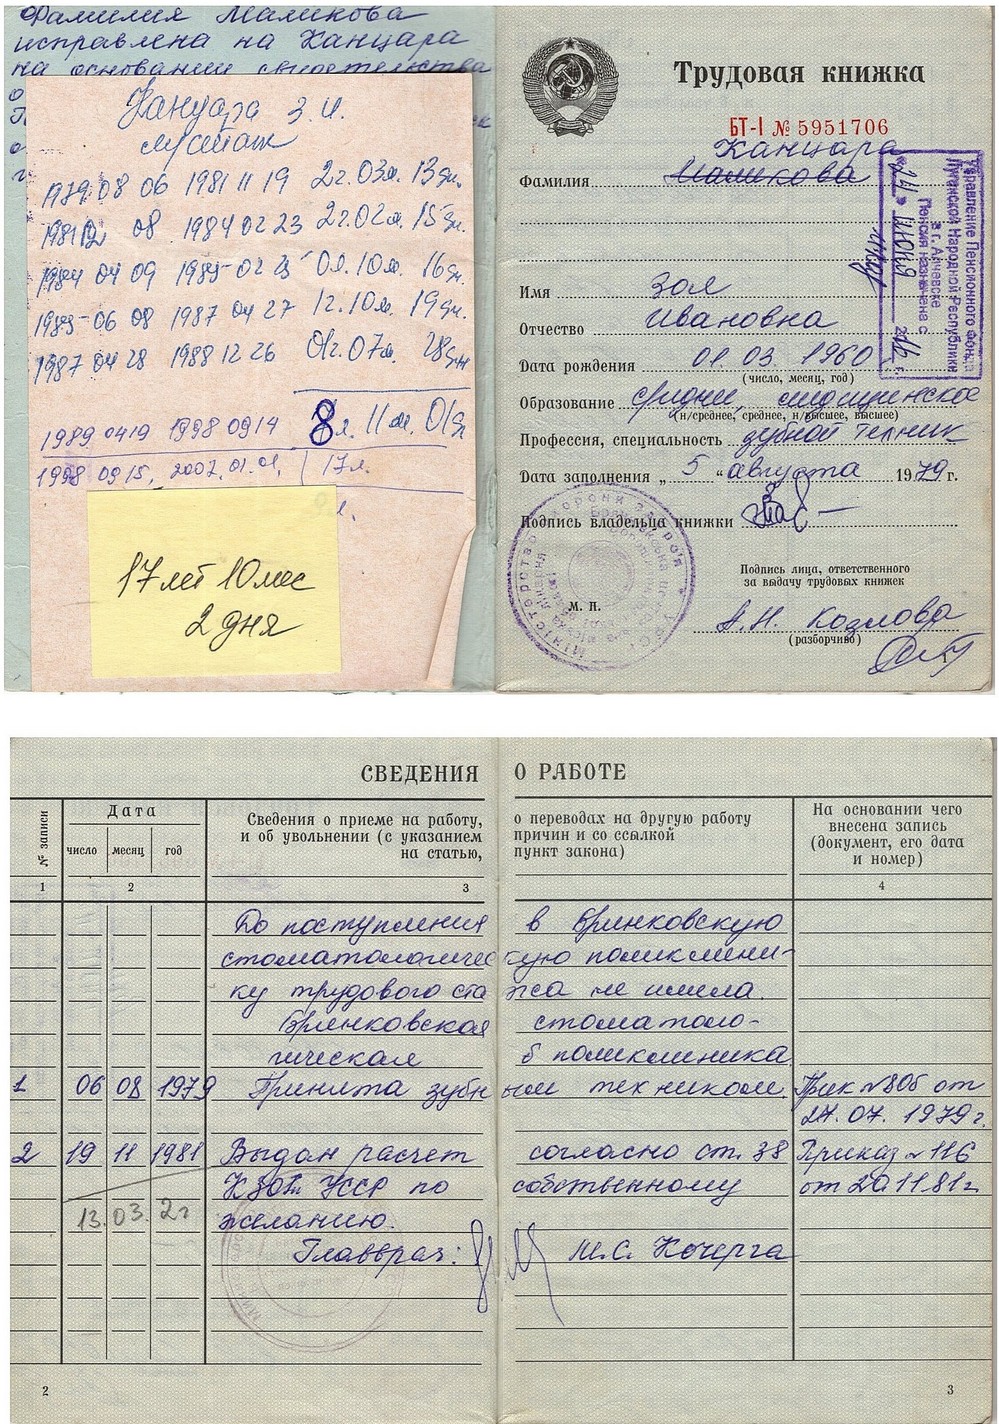 Фамилия Маликова
исправлена на Канцара
на основании свидетельства
Канцара З.И.
1979 08 06 1981 11 19 2г. 03м. 13дн.
1981 12 08 1984 02 23 2г. 02м. 15дн.
1984 04 09 1985 02 25 0л. 10м. 16дн.
1985 06 08 1987 04 27 1г. 10м. 19дн.
1987 04 28 1988 12 26 01г. 07м. 28дн
1989 04 19 1998 09 14 8л. 11м. 01дн
1998 09 15, 2007. 01. 01, 17л.
17 лет 10 мес
2 дня
Трудовая книжка
БТ-I № 5951706
Канцара
Фамилия Маликова
Имя Зоя
Отчество Ивановна
Дата рождения 01. 03. 1960
(число, месяц, год)
Образование средне, медицинское
(н/среднее, среднее, н/высшее, высшее)
Профессия, специальность зубной техник
Дата заполнения „ 5 “ августа 1979 г.
Подпись владельца книжки
Подпись лица, ответственного
за выдачу трудовых книжек
М. П.
А.Н. Козлова
(разборчиво)
Управление Пенсионного фонда
Луганской Народной Республики
в г. Алчевске
Пенсия назначена с
«24» июня 2016 г.
СВЕДЕНИЯ О РАБОТЕ
№ записи
Дата
число месяц год
Сведения о приеме на работу, о переводах на другую работу
и об увольнении (с указанием причин и со ссылкой
на статью, пункт закона)
На основании чего
внесена запись
(документ, его дата
и номер)
1 2 3 4
До поступления в Брянковскую
стоматологическую поликлини-
ку трудового стажа не имела
Брянковская стоматоло-
гическая поликлиника
1 06 08 1979 Принята зубным техником. Прик №80б от
27. 07. 1979г.
2 19 11 1981 Выдан расчет согласно ст. 38 Приказ №116
КЗоТа УССР по собственному от 20.11.81г
13. 03. 2г желанию.
Главврач: М.С. Кочерга
2
3